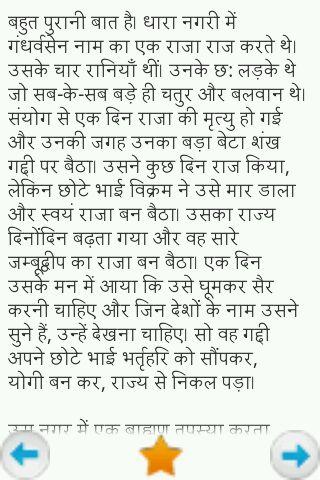 बहुत पुरानी बात है। धारा नगरी में
गंधर्वसेन नाम का एक राजा राज करते थे।
उसके चार रानियाँ थीं। उनके छ: लड़के थे
जो सब-के-सब बड़े ही चतुर और बलवान थे।
संयोग से एक दिन राजा की मृत्यु हो गई
और उनकी जगह उनका बड़ा बेटा शंख
गद्दी पर बैठा। उसने कुछ दिन राज किया,
लेकिन छोटे भाई विक्रम ने उसे मार डाला
और स्वयं राजा बन बैठा। उसका राज्य
दिनोंदिन बढ़ता गया और वह सारे
जम्बूद्वीप का राजा बन बैठा। एक दिन
उसके मन में आया कि उसे घूमकर सैर
करनी चाहिए और जिन देशों के नाम उसने
सुने हैं, उन्हें देखना चाहिए। सो वह गद्दी
अपने छोटे भाई भर्तृहरि को सौंपकर,
योगी बन कर, राज्य से निकल पड़ा।
उस नगर में एक ब्राह्मण तपस्या करता